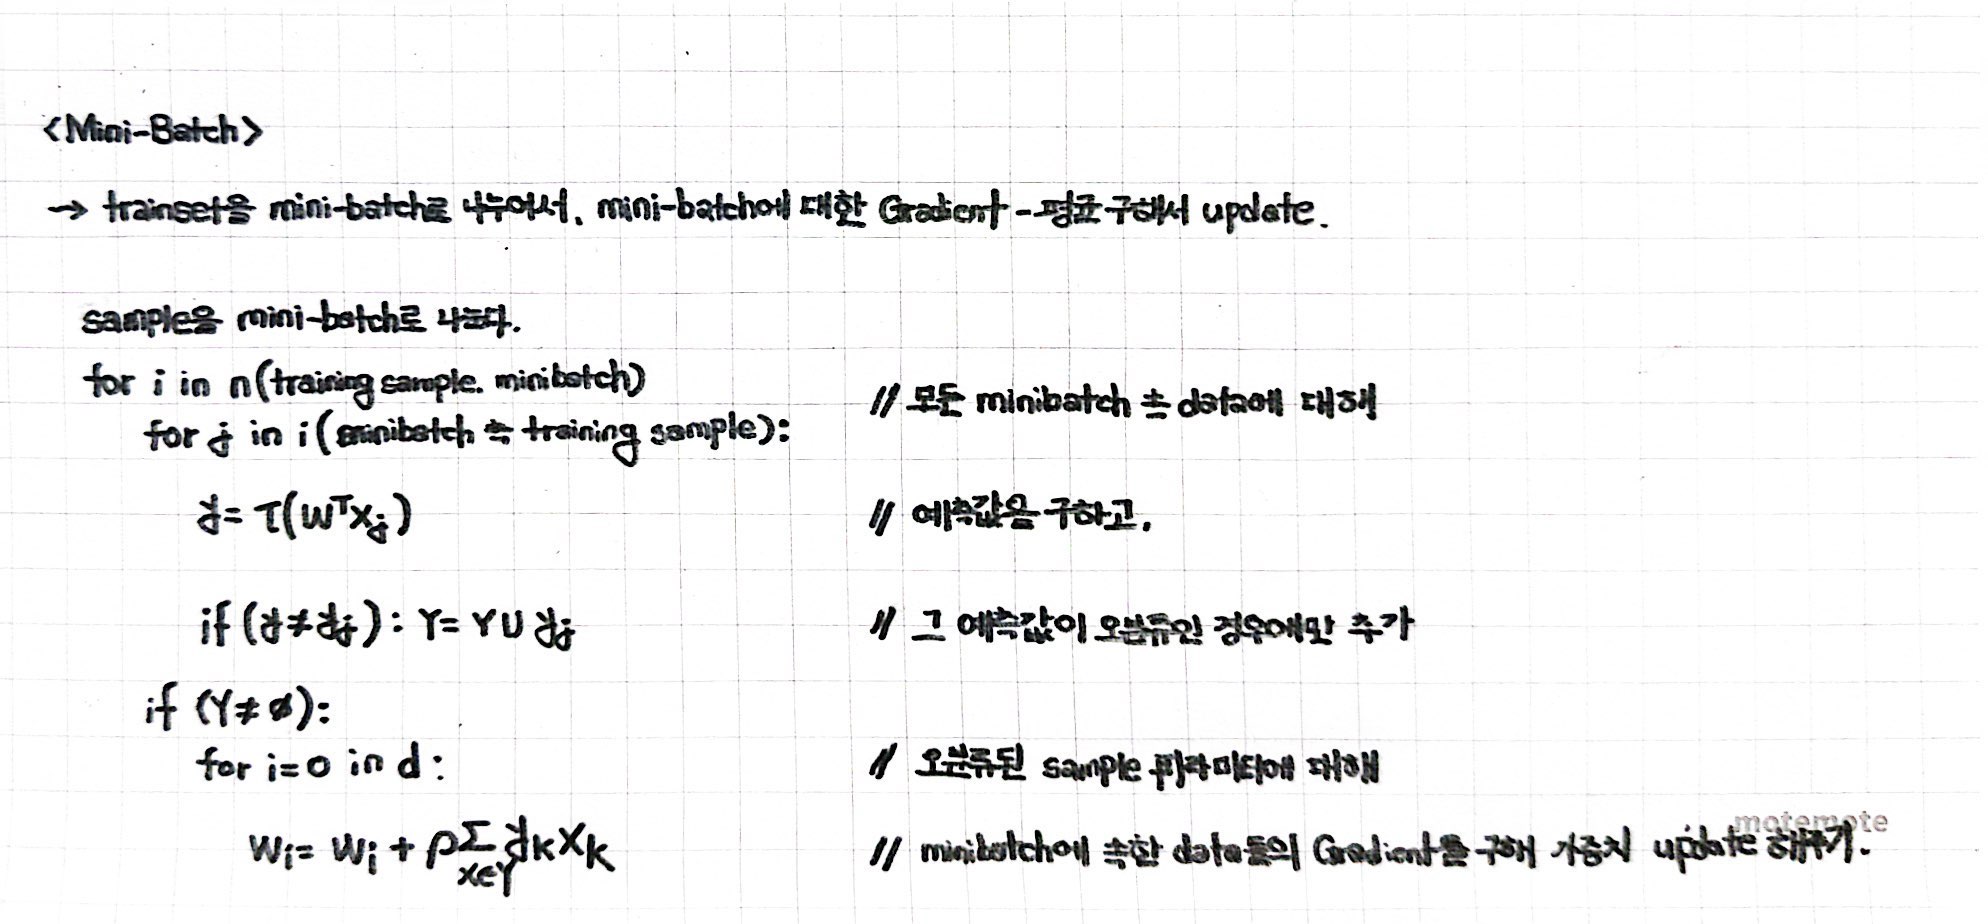 <Mini-Batch>
→ trainset을 mini-batch로 나누어서, mini-batch에 대한 Gradient-평균 구해서 update.
sample을 mini-batch로 나눈다.
for i in n(training sample. minibatch)
for j in i(minibatch 속 training sample): // 모든 minibatch 속 data에 대해
y = τ(wᵀxⱼ) // 예측값을 구하고,
if (y≠yⱼ): Y = Y∪yⱼ // 그 예측값이 오분류인 경우에만 추가
if (Y≠ø):
for i=0 in d: // 오분류된 sample 파라미터에 대해
Wi = Wi + ρΣ yₖxₖ // minibatch에 속한 data들의 Gradient를 구해 가중치 update 해주기.
x∈Y
motemote